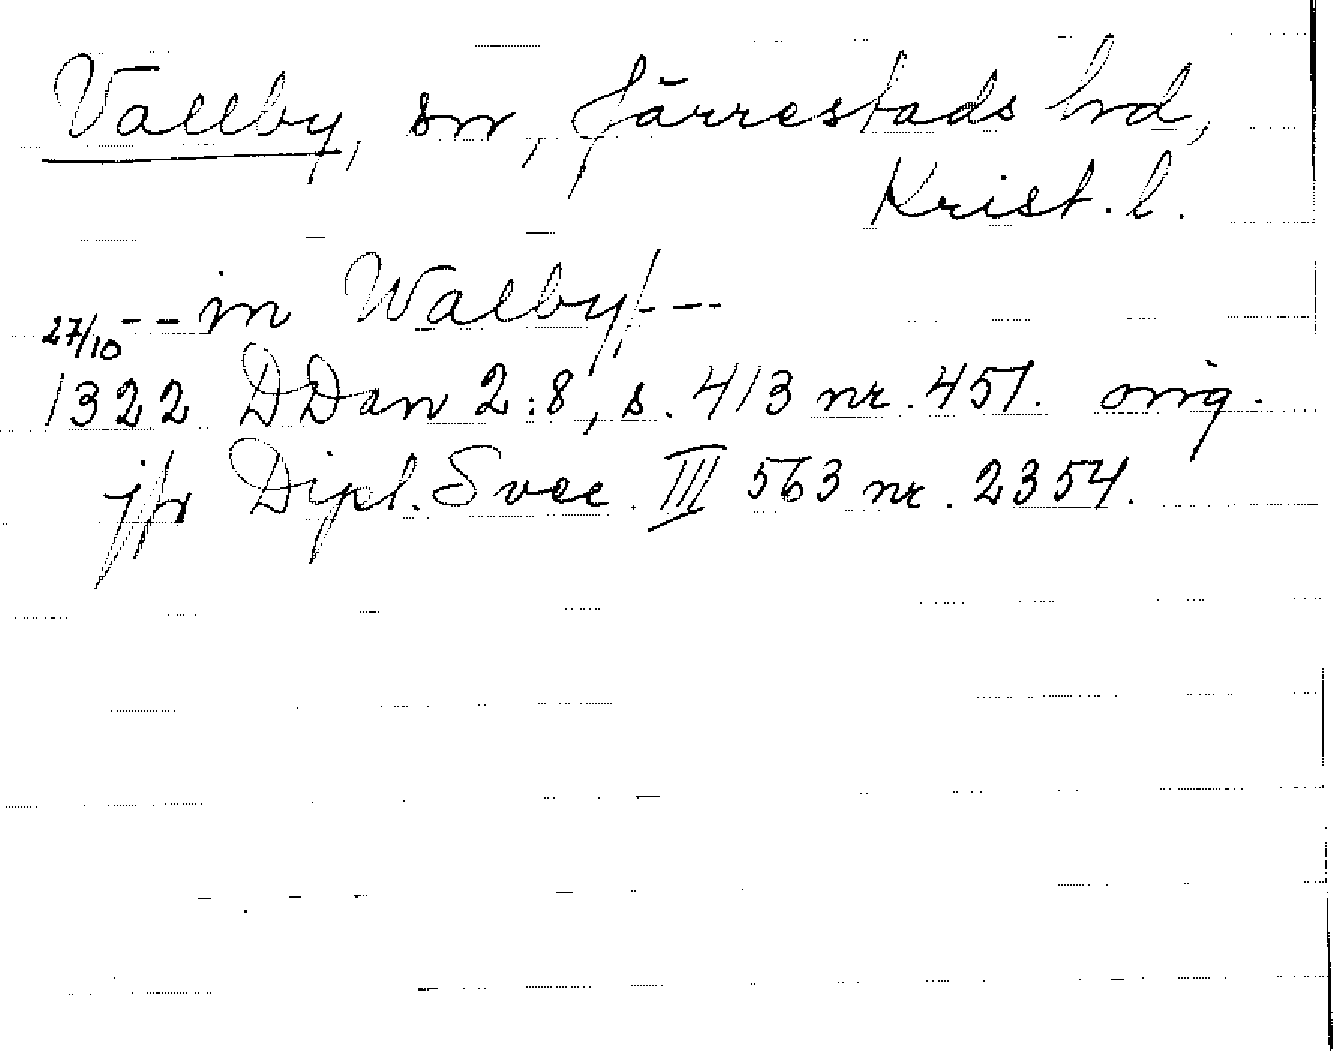 Vallby, sn, Järrestads hd,
Krist. l.
-- in Walby/ --
27/10
1322 DDan 2:8, s. 413 nr. 451. orig.
jfr Dipl. Svec. III 563 nr. 2354.